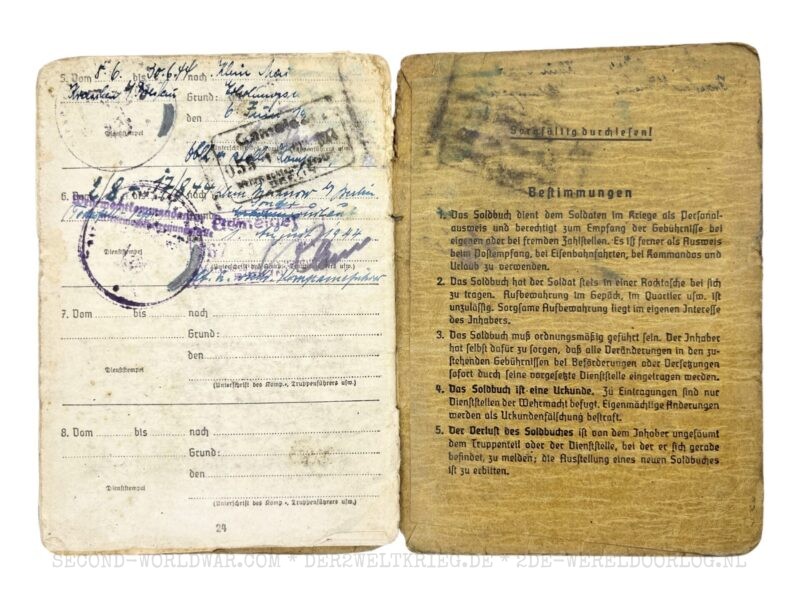 5. Vom 8.6. bis 30.6.44 nach Klein
Grund:
den 6. Juni 19
Dienststempel
(Unterschrift des Komp.-, Truppenführers usw.)
6. Vom 2/8. bis 17/8 44 nach
August 1944
Dienststempel
(Unterschrift des Komp.-, Truppenführers usw.)
7. Vom bis nach
Grund:
den
Dienststempel
(Unterschrift des Komp.-, Truppenführers usw.)
8. Vom bis nach
Grund:
den
Dienststempel
(Unterschrift des Komp.-, Truppenführers usw.)
24
Sorgfältig durchlesen!
Bestimmungen
1. Das Soldbuch dient dem Soldaten im Kriege als Personal-
ausweis und berechtigt zum Empfang der Gebührnisse bei
eigenen oder bei fremden Zahlstellen. Es ist ferner als Ausweis
beim Postempfang, bei Eisenbahnfahrten, bei Kommandos und
Urlaub zu verwenden.
2. Das Soldbuch hat der Soldat stets in einer Rocktasche bei sich
zu tragen. Aufbewahrung im Gepäck, im Quartier usw. ist
unzulässig. Sorgsame Aufbewahrung liegt im eigenen Interesse
des Inhabers.
3. Das Soldbuch muß ordnungsmäßig geführt sein. Der Inhaber
hat selbst dafür zu sorgen, daß alle Veränderungen in den zu-
stehenden Gebührnissen bei Beförderungen oder Versetzungen
sofort durch seine vorgesetzte Dienststelle eingetragen werden.
4. Das Soldbuch ist eine Urkunde. Zu Eintragungen sind nur
Dienststellen der Wehrmacht befugt. Eigenmächtige Änderungen
werden als Urkundenfälschung bestraft.
5. Der Verlust des Soldbuches ist von dem Inhaber ungesäumt
dem Truppenteil oder der Dienststelle, bei der er sich gerade
befindet, zu melden; die Ausstellung eines neuen Soldbuches
ist zu erbitten.
SECOND-WORLDWAR.COM * DER2WELTKRIEG.DE * 2DE-WERELDOORLOG.NL